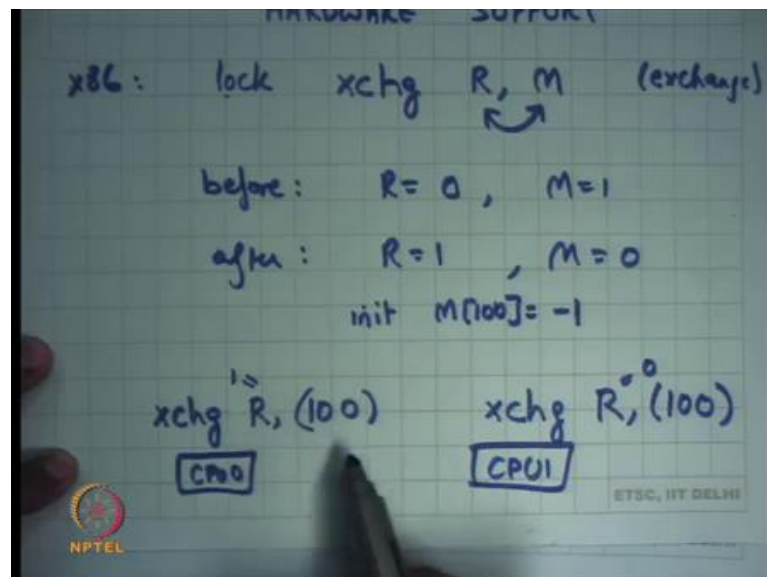 HARDWARE SUPPORT
x86: lock xchg R, M (exchange)
before: R= 0, M=1
after: R=1, M=0
init M[100]= -1
1= =0
xchg R, (100) xchg R, (100)
CPU0 CPU1
ETSC, IIT DELHI
NPTEL